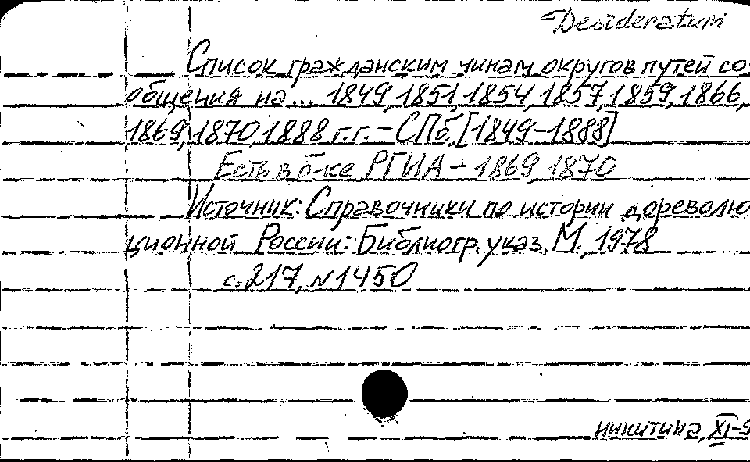 Desideratum
Список гражданским чинам округов путей со-
общения на... 1849, 1851, 1854, 1857, 1859, 1866,
1869, 1870, 1888 г.г. – СПб, [1849–1888]
Есть в б-ке РГИА – 1869, 1870
Источник: Справочники по истории дореволю
ционной России: Библиогр. указ. М., 1978
с. 217, №1450
никитина, XI-9